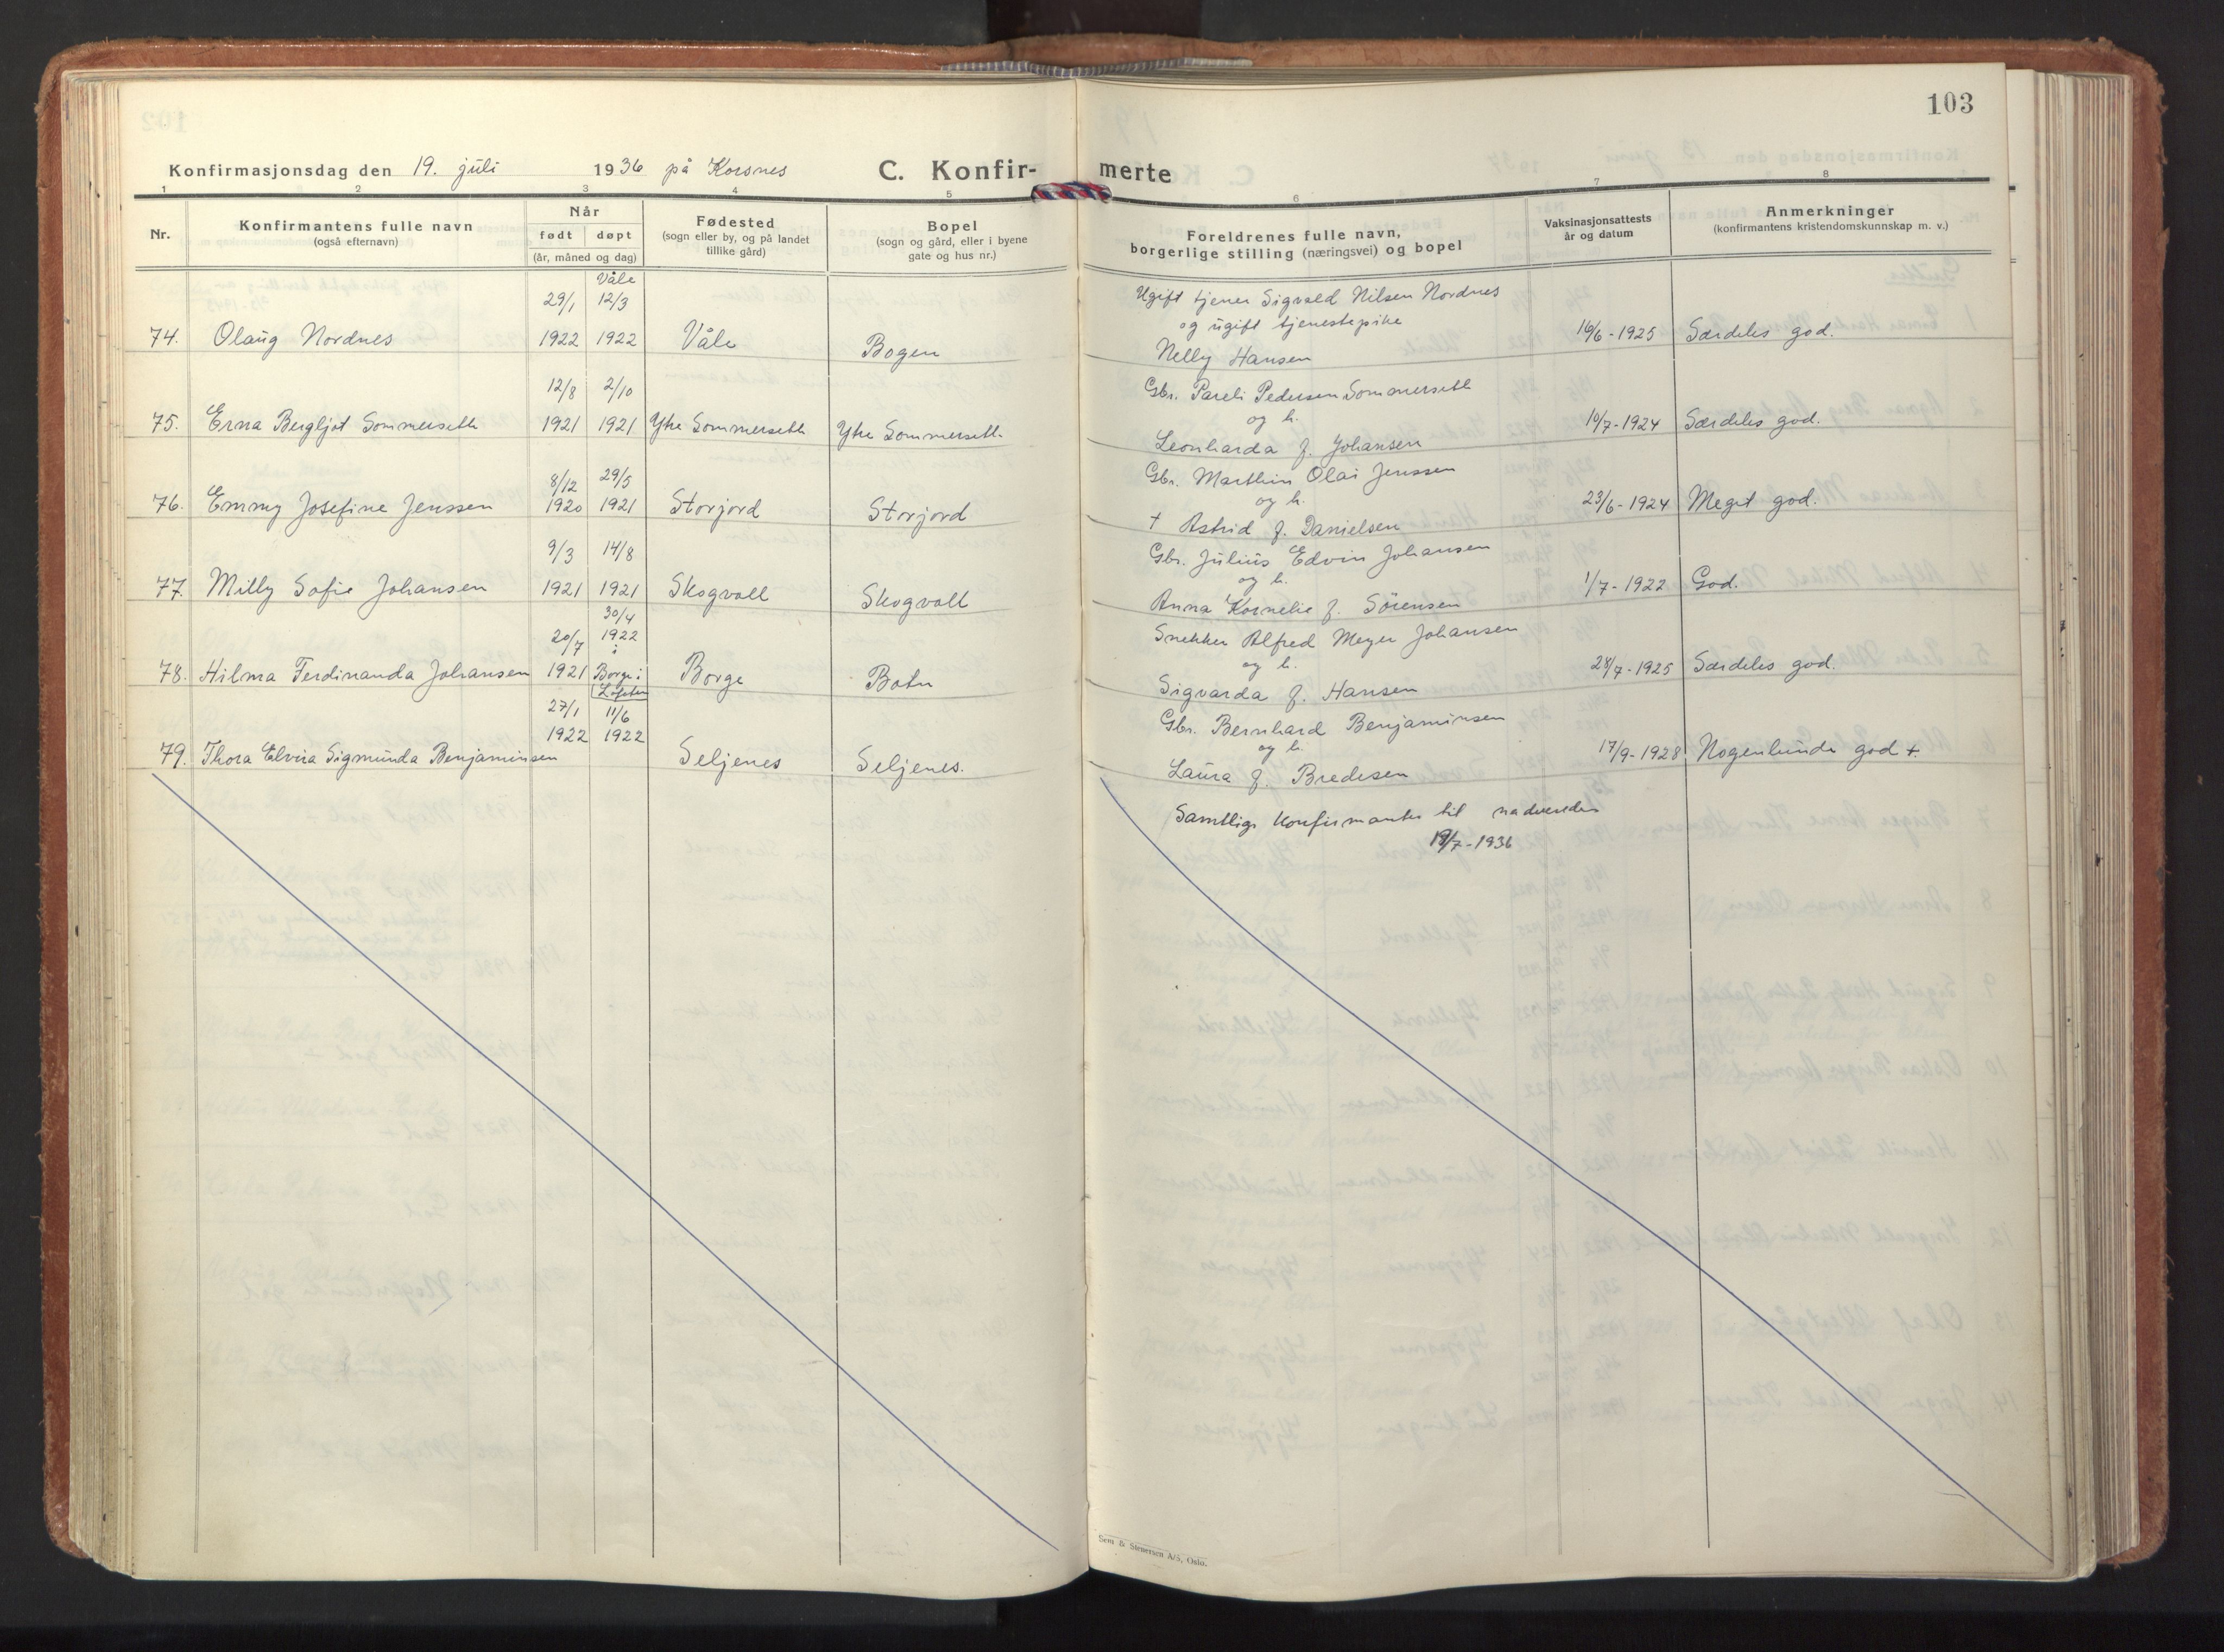 103
Konfirmasjonsdag den 19. juli 1936 på Korsnes C. Konfir- merte
1 2 3 4 5 6 7 8
Nr.
Konfirmantens fulle navn
(også efternavn)
Når
født døpt
(år, måned og dag)
Fødested
(sogn eller by, og på landet
tillike gård)
Bopel
(sogn og gård, eller i byene
gate og hus nr.)
Foreldrenes fulle navn,
borgerlige stilling (næringsvei) og bopel
Vaksinasjonsattests
år og datum
Anmerkninger
(konfirmantens kristendomskunnskap m. v.)
Våle
29/1 12/3
74. Olaug Nordnes 1922 1922 Våle Bogen
Ugift tjener Sigvald Nilsen Nordnes
og ugift tjenestepike
Nelly Hansen
16/6-1925 Særdeles god.
12/8 2/10
75. Erna Bergljot Sommerseth 1921 1921 Ytre Sommerseth Ytre Sommerseth
Gbr. Pareli Pedersen Sommerseth
og h.
Leonharda f. Johansen
10/7-1924 Særdeles god.
8/12 29/5
76. Emmy Josefine Jenssen 1920 1921 Storjord Storjord
Gbr. Marthin Olai Jenssen
og h.
+ Astrid f. Danielsen
23/6-1924 Meget god.
9/3 14/8
77. Milly Sofie Johansen 1921 1921 Skogvoll Skogvoll
Gbr. Julius Edvin Johansen
og h.
Anna Kornelie f. Sörensen
1/7-1922 God.
30/4
20/7 1922
i
78. Hilma Ferdinanda Johansen 1921 Borge i Borge Botn
Lofoten
Snekker Alfred Meyer Johansen
og h.
Sigvarda f. Hansen
28/7-1925 Særdeles god.
27/1 11/6
1922 1922
79. Thora Elvira Sigmunda Benjaminsen Seljenes Seljenes.
Gbr. Bernhard Benjaminsen
og h.
Laura f. Bredesen
17/9-1928 Nogenlunde god +.
Samtlige Konfirmanter til nadverden
19/7-1936
Sem & Stenersen A/S, Oslo.